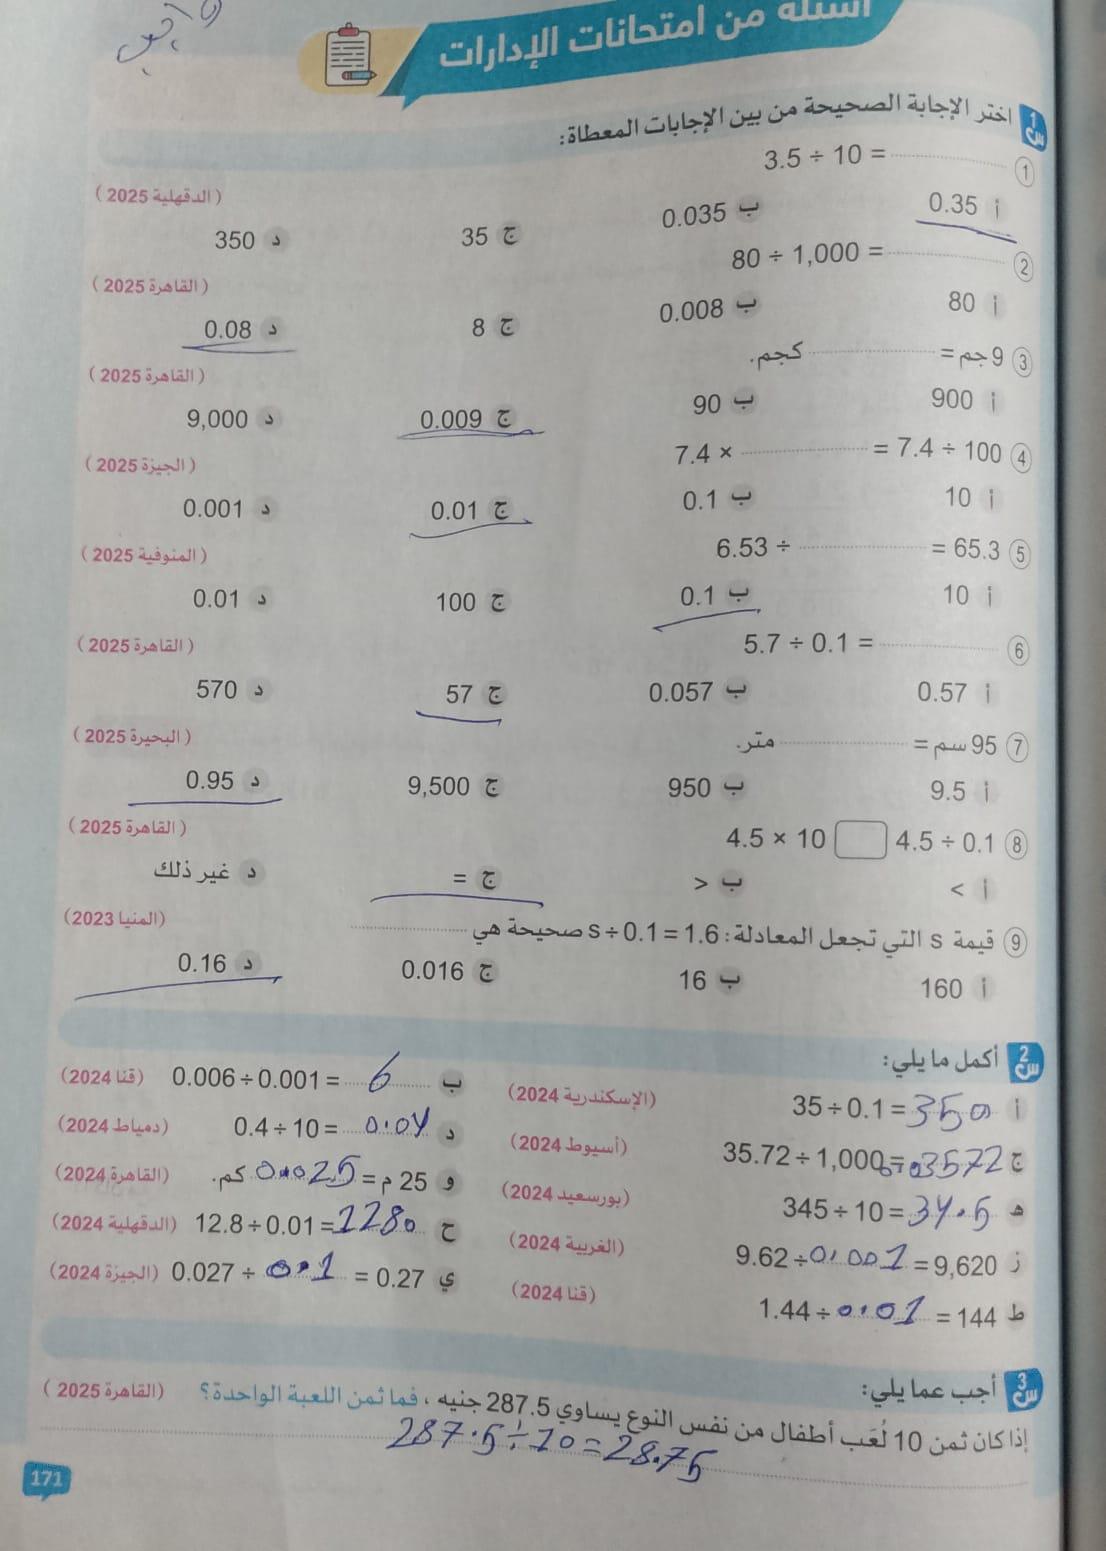 أسئلة من امتحانات الإدارات
س1 اختر الإجابة الصحيحة من بين الإجابات المعطاة:
1 3.5 ÷ 10 = (الدقهلية 2025)
أ 0.35 ب 0.035 ج 35 د 350
2 80 ÷ 1,000 = (القاهرة 2025)
أ 80 ب 0.008 ج 8 د 0.08
3 9 جم = كجم. (القاهرة 2025)
أ 900 ب 90 ج 0.009 د 9,000
4 7.4 ÷ 100 = 7.4 × (الجيزة 2025)
أ 10 ب 0.1 ج 0.01 د 0.001
5 65.3 = 6.53 ÷ (المنوفية 2025)
أ 10 ب 0.1 ج 100 د 0.01
6 5.7 ÷ 0.1 = (القاهرة 2025)
أ 0.57 ب 0.057 ج 57 د 570
7 95 سم = متر. (البحيرة 2025)
أ 9.5 ب 950 ج 9,500 د 0.95
8 4.5 × 10 4.5 ÷ 0.1 (القاهرة 2025)
أ < ب > ج = د غير ذلك
9 قيمة s التي تجعل المعادلة: s ÷ 0.1 = 1.6 صحيحة هي (المنيا 2023)
أ 160 ب 16 ج 0.016 د 0.16
س2 أكمل ما يلي:
أ 35 ÷ 0.1 = 350 (الإسكندرية 2024) ب 0.006 ÷ 0.001 = 6 (قنا 2024)
ج 35.72 ÷ 1,000 = 0.03572 (أسيوط 2024) د 0.4 ÷ 10 = 0.04 (دمياط 2024)
هـ 345 ÷ 10 = 34.5 (بورسعيد 2024) و 25 م = 0.025 كم. (القاهرة 2024)
ز 9.62 ÷ 0.001 = 9,620 (الغربية 2024) ح 12.8 ÷ 0.01 = 1280 (الدقهلية 2024)
ط 1.44 ÷ 0.01 = 144 (قنا 2024) ي 0.027 ÷ 0.1 = 0.27 (الجيزة 2024)
س3 أجب عما يلي:
إذا كان ثمن 10 لُعَب أطفال من نفس النوع يساوي 287.5 جنيه، فما ثمن اللعبة الواحدة؟ (القاهرة 2025)
287.5 ÷ 10 = 28.75
171